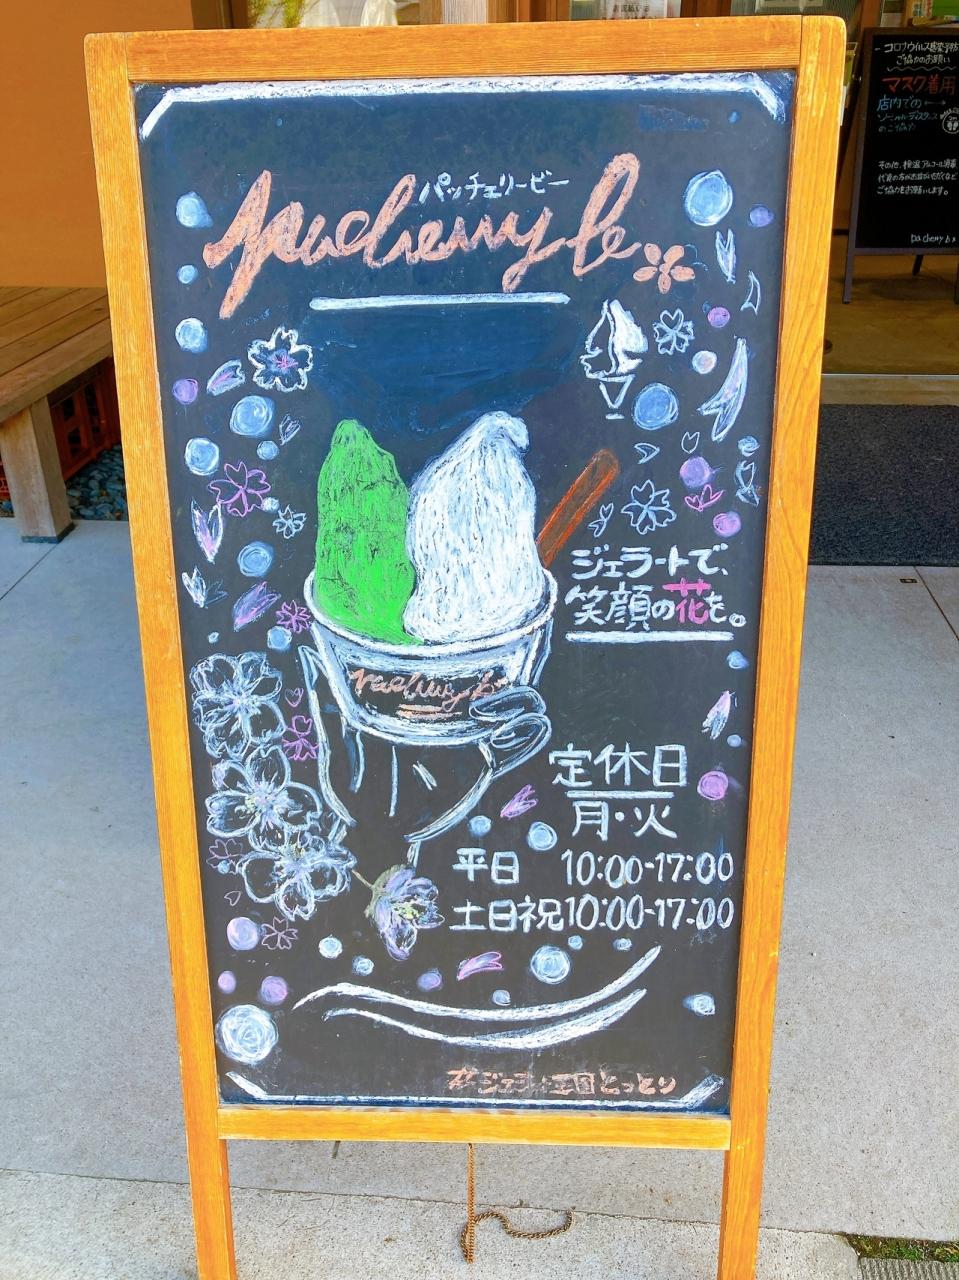 パッチェリービー
pacherry be
ジェラートで、
笑顔の花を。
定休日
月・火
平日 10:00-17:00
土日祝 10:00-17:00
#ジェラート王国とっとり
コロナウイルス感染予防
ご協力のお願い
マスク着用
店内での
ソーシャルディスタンス
のご協力
その他、検温、アルコール消毒
ご協力をお願いします。